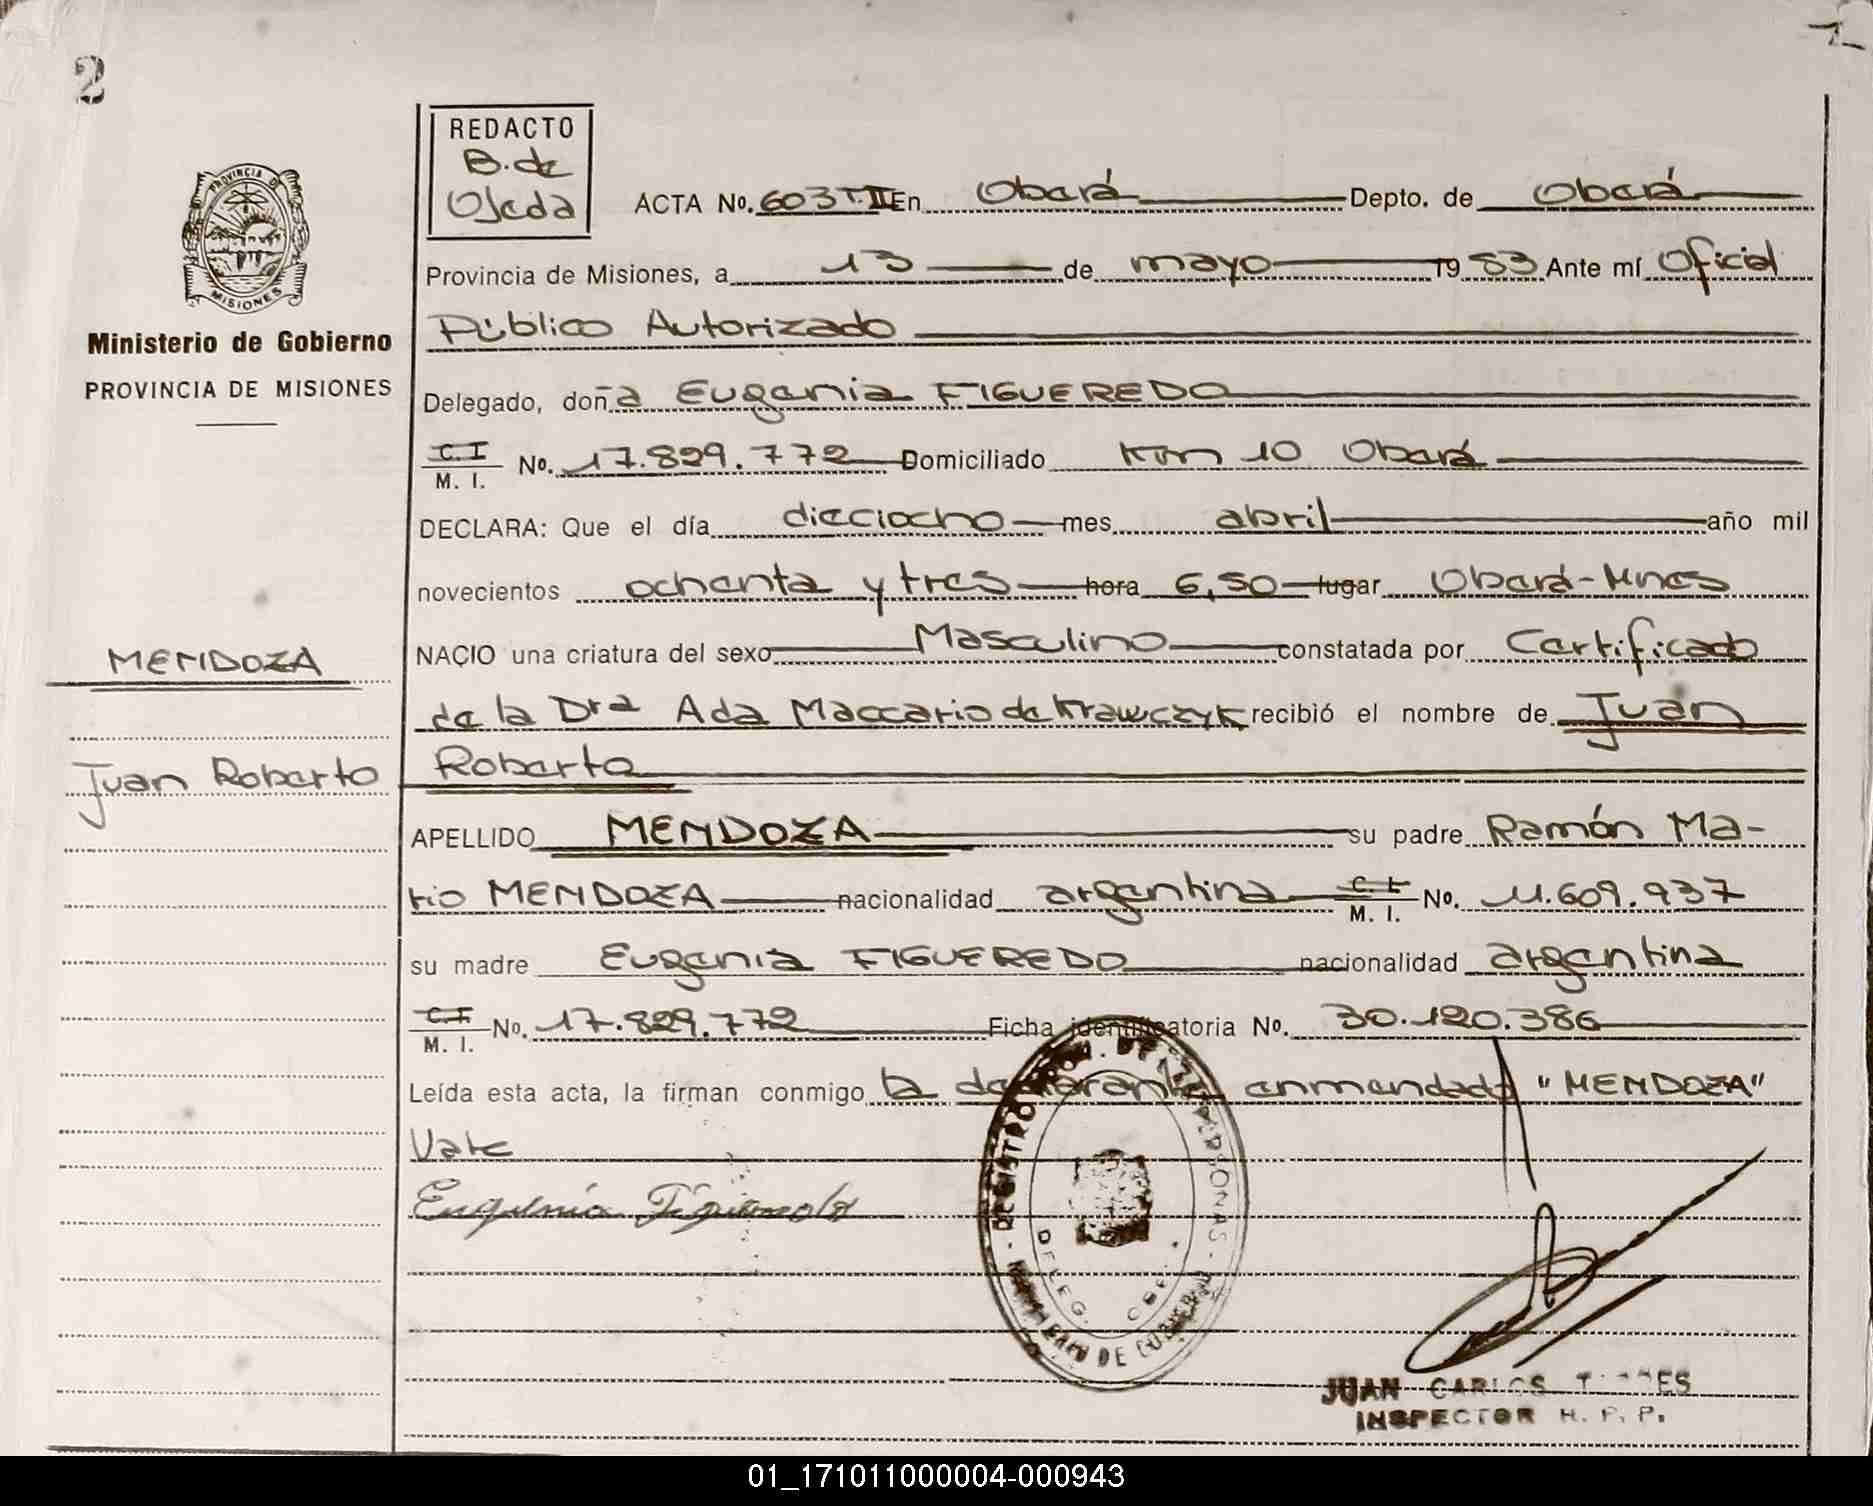 2
REDACTO
B. de
Ojeda
PROVINCIA DE
MISIONES
Ministerio de Gobierno
PROVINCIA DE MISIONES
ACTA No. 603 T. II En Oberá Depto. de Oberá
Provincia de Misiones, a 13 de mayo 1983 Ante mí Oficial
Público Autorizado
Delegado, doña Eugenia FIGUEREDO
C. I
M. I. No. 17.829.772 Domiciliado Km 10 Oberá
DECLARA: Que el día dieciocho mes abril año mil
novecientos ochenta y tres hora 6,50 lugar Oberá-Mnes
NACIO una criatura del sexo Masculino constatada por Certificado
de la Dra Ada Maccario de Krawczyk recibió el nombre de Juan
Roberto
MENDOZA
Juan Roberto
APELLIDO MENDOZA su padre Ramón Ma-
rio MENDOZA nacionalidad argentina C. I.
M. I. No. 11.609.937
su madre Eugenia FIGUEREDO nacionalidad argentina
C. I.
M. I. No. 17.829.772 Ficha identificatoria No. 30.120.386
Leída esta acta, la firman conmigo la declarante enmendado "MENDOZA"
Vale
Eugenia Figueredo
REGISTRO DE LAS PERSONAS
DELEG.
DE
JUAN CARLOS
INSPECTOR R. P. P.
01_171011000004-000943